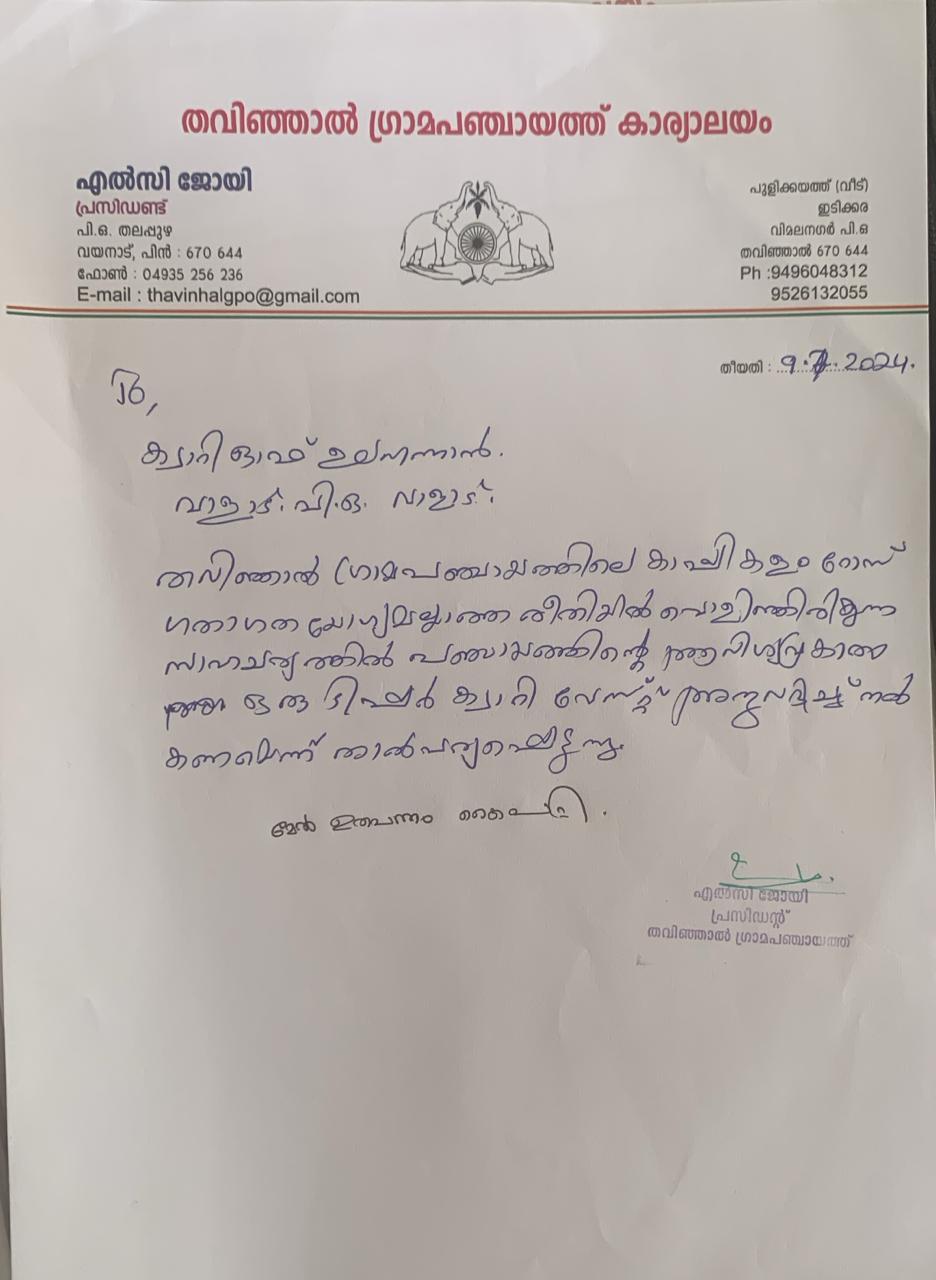 തവിഞ്ഞാൽ ഗ്രാമപഞ്ചായത്ത് കാര്യാലയം
എൽസി ജോയി
പ്രസിഡണ്ട്
പി.ഒ. തലപ്പുഴ
വയനാട്, പിൻ : 670 644
ഫോൺ : 04935 256 236
E-mail : thavinhalgpo@gmail.com
പുളിക്കയത്ത് (വീട്)
ഇടിക്കര
വിമലനഗർ പി.ഒ
തവിഞ്ഞാൽ 670 644
Ph :9496048312
9526132055
തീയതി : 9.7.2024.
To,
ക്വാറി ഓഫ്
വാളാട്. പി.ഒ. വാളാട്.
തവിഞ്ഞാൽ ഗ്രാമപഞ്ചായത്തിലെ റോഡ്
ഗതാഗത യോഗ്യമല്ലാത്ത രീതിയിൽ പൊളിഞ്ഞിരിക്കുന്ന
സാഹചര്യത്തിൽ പഞ്ചായത്തിന്റെ
ഒരു ടിപ്പർ ക്വാറി വേസ്റ്റ് അനുവദിച്ച് നൽ
കണമെന്ന് താൽപര്യപ്പെടുന്നു.
എൽസി ജോയി
പ്രസിഡന്റ്
തവിഞ്ഞാൽ ഗ്രാമപഞ്ചായത്ത്